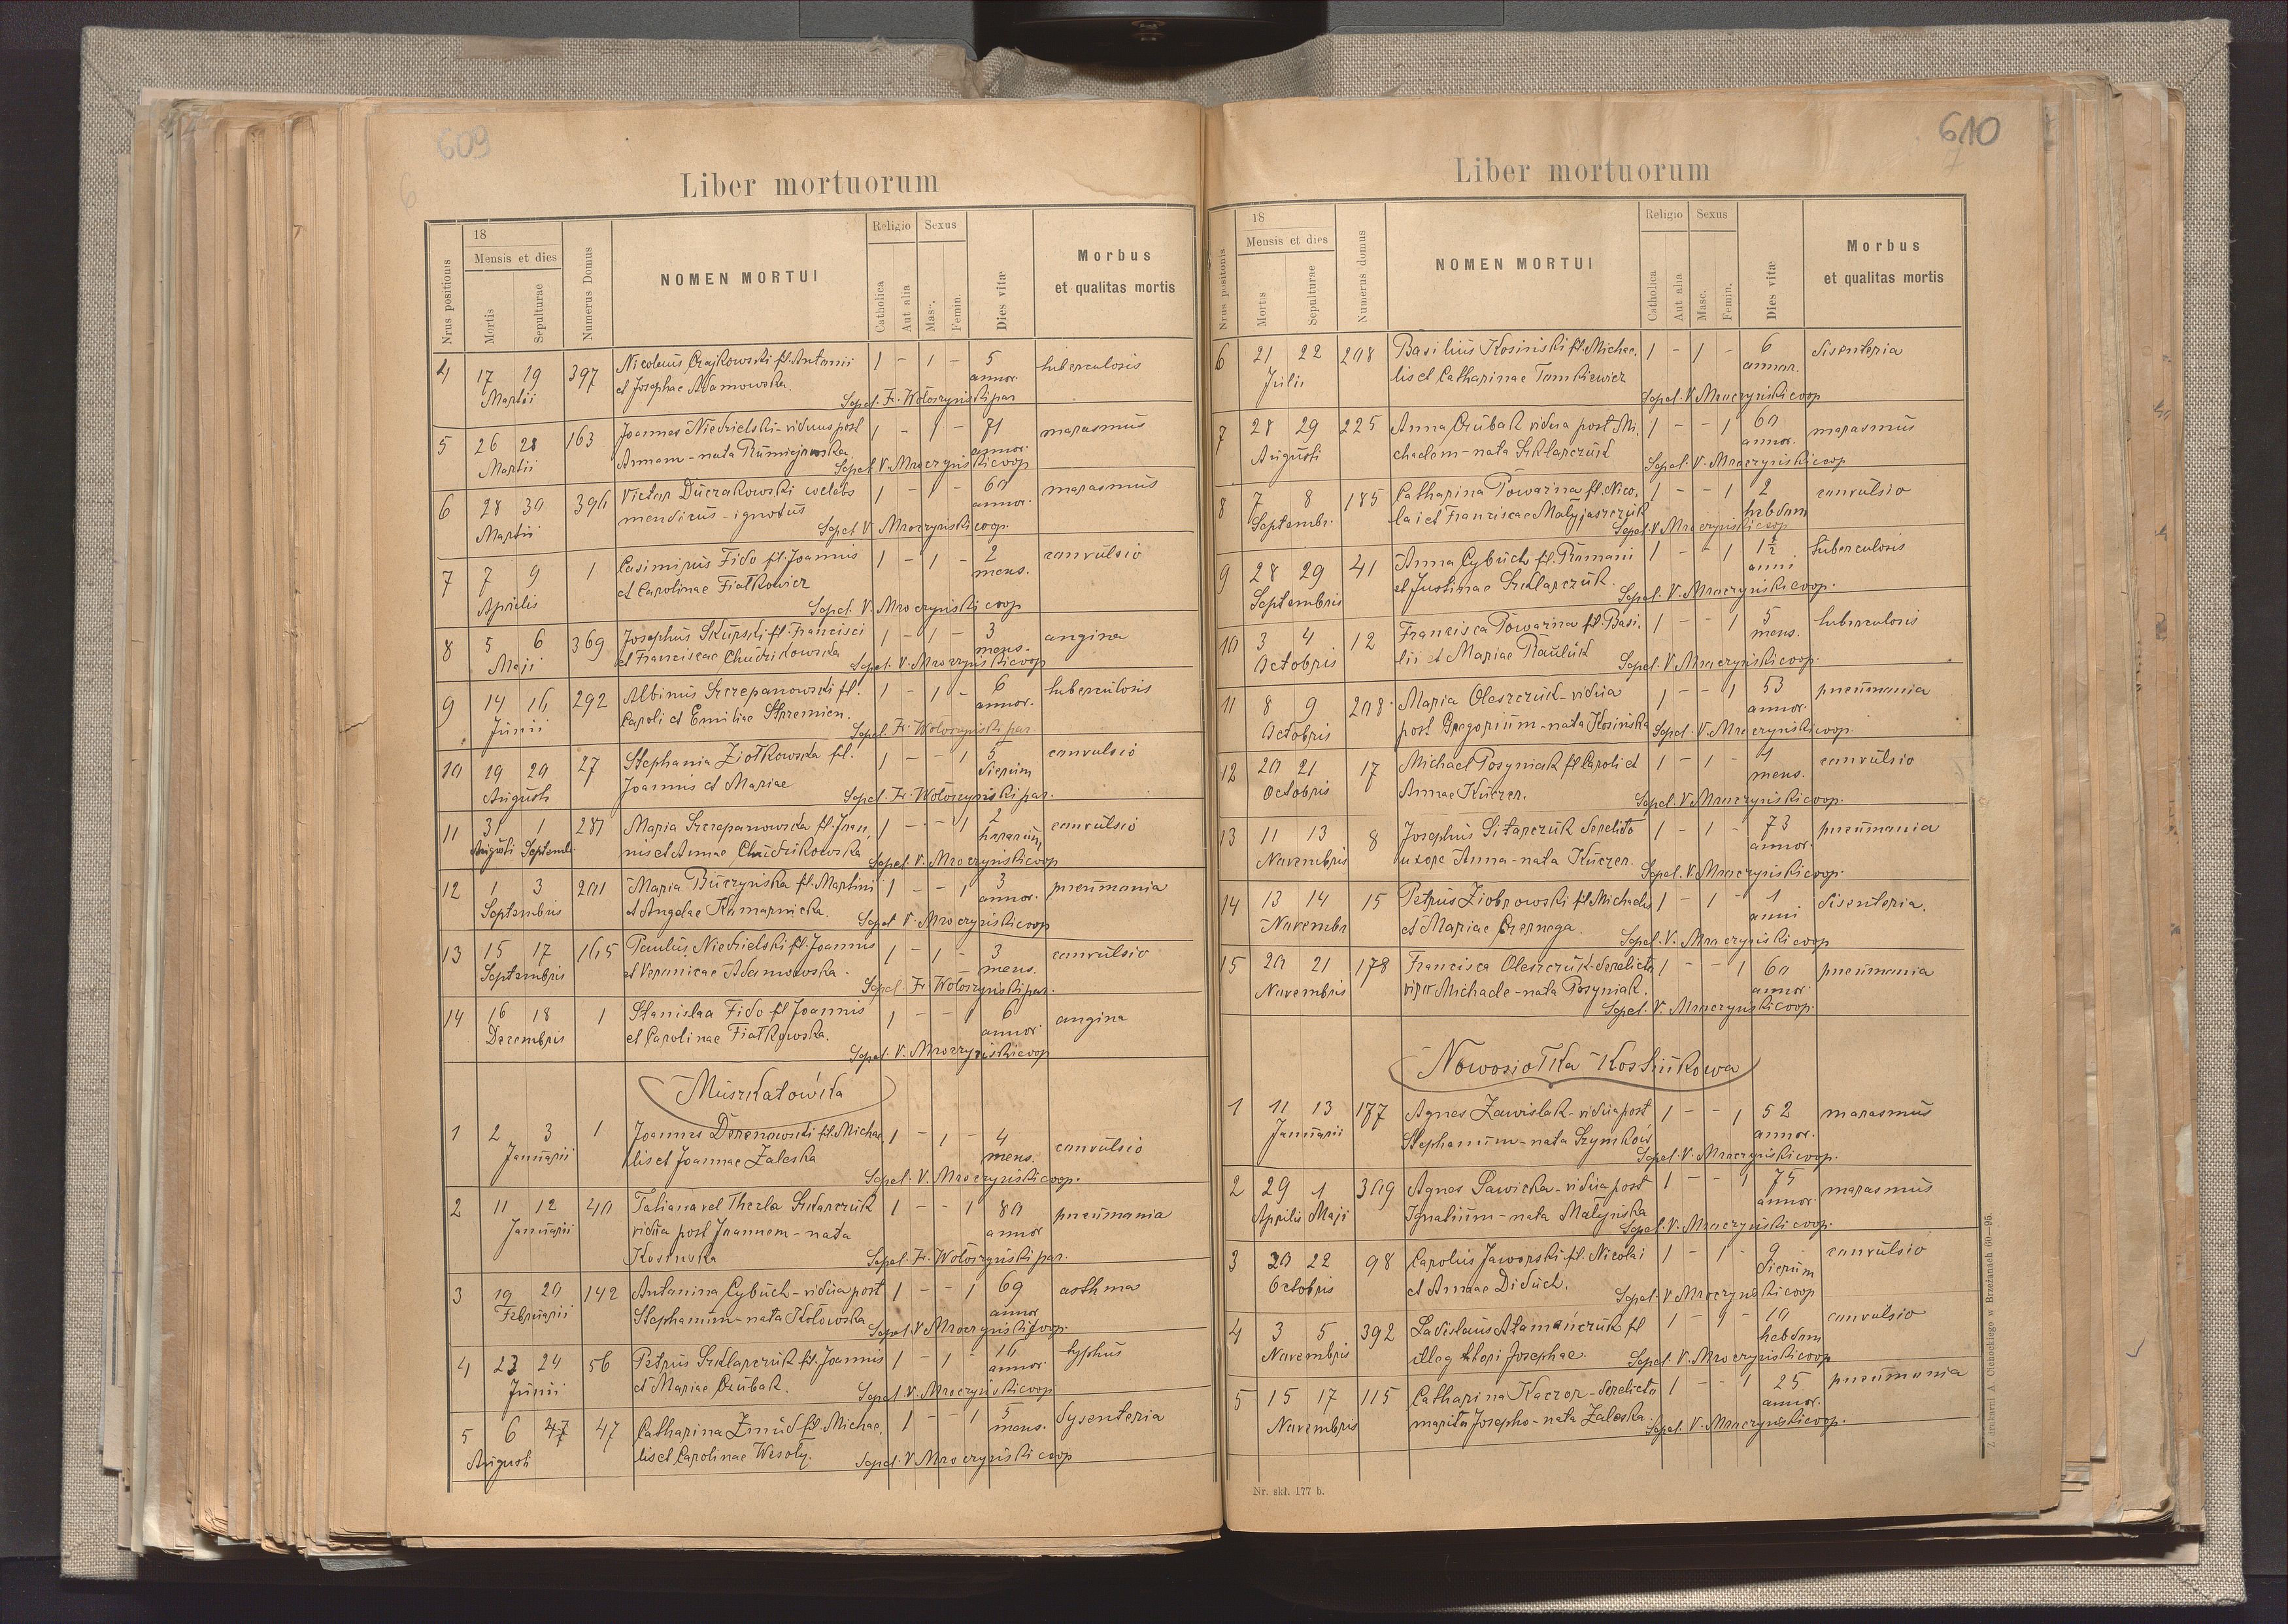 609
6
Liber mortuorum
Nrus positionis
18
Mensis et dies
Mortis
Sepulturae
Numerus Domus
NOMEN MORTUI
Religio
Catholica
Aut alia
Sexus
Masc.
Femin.
Dies vitæ
Morbus
et qualitas mortis
4 17 19 397 Nicolaus Czajkowski fil. Antonii 1 - 1 - 5 tuberculosis
Martii et Josephae Adamowska. annor.
Sepel. Fr. Wołoszyński par
5 26 28 163 Joannes Niedzielski - viduus post 1 - 1 - 71 marasmus
Martii Annam - nata annor.
Sepel. V. Mroczyński coop
6 28 30 396 Victor Duczakowski coelebs 1 - 1 - 60 marasmus
Martii mendicus - ignotus annor.
Sepel V. Mroczyński coop.
7 7 9 1 Casimirus Fido fil. Joannis 1 - 1 - 2 convulsio
Aprilis et Carolinae Fiałkowicz mens.
Sepel. V. Mroczyński coop
8 5 6 369 Josephus Skupski fil. Francisci 1 - 1 - 3 angina
Maji et Franciscae Chudzikowska mens.
Sepel. V. Mroczyński coop
9 14 16 292 Albinus Szczepanowski fil. 1 - 1 - 6 tuberculosis
Junii Caroli et Emiliae Strzemien. annor.
Sepel. Fr. Wołoszyński par.
10 19 20 27 Stephania Ziołkowska fil. 1 - - 1 5 convulsio
Augusti Joannis et Mariae dierum
Sepel. Fr. Wołoszyński par.
11 31 1 287 Maria Szczepanowska fil. Joan, 1 - - 1 2 convulsio
Augusti Septemb. nis et Annae Chudzikowska horarum
Sepel. V. Mroczyński coop
12 1 3 201 Maria Buczyńska fil. Martini 1 - - 1 3 pneumonia
Septembris et Angelae Komarnicka. annor.
Sepel V. Mroczyński coop
13 15 17 165 Paulus Niedzielski fil. Joannis 1 - 1 - 3 convulsio
Septembris et Veronicae Adamowska. mens.
Sepel. Fr Wołoszyński par.
14 16 18 1 Stanislaa Fido fil Joannis 1 - - 1 6 angina
Decembris et Carolinae Fiałkowska. annor.
Sepel. V. Mroczyński coop
Muszkatówka
1 2 3 1 Joannes Derenowski fil. Michae, 1 - 1 - 4 convulsio
Januarii lis et Joannae Zaleska mens.
Sepel. V. Mroczyński coop.
2 11 12 40 Tatiana vel Thecla Szklarczuk 1 - - 1 80 pneumonia
Januarii vidua post Joannem - nata annor
Sepel. Fr. Wołoszyński par.
3 19 20 142 Antonina Cybuch - vidua post 1 - - 1 69 asthma
Februarii Stephanum - nata Kołowska annor
Sepel. V Mroczyński coop.
4 23 24 56 Petrus Szklarczuk fil. Joannis 1 - 1 - 14 typhus
Junii et Mariae Czubak. annor.
Sepel. V. Mroczyński coop
5 6 7 47 Catharina Zmud fil. Michae, 1 - - 1 5 dysenteria
Augusti lis et Carolinae Wesoły. mens.
Sepel. V Mroczyński coop
610
7
Liber mortuorum
Nrus positonis
18
Mensis et dies
Mortis
Sepulturae
Numerus domus
NOMEN MORTUI
Religio
Catholica
Aut alia
Sexus
Masc.
Femin.
Dies vitæ
Morbus
et qualitas mortis
6 21 22 208 Basilius Kosiński fil. Michae, 1 - 1 - 6 disenteria
Julii lis et Catharinae Tomkiewicz annor.
Sepel. V. Mroczyński coop
7 28 29 225 Anna Czubak vidua post Mi, 1 - - 1 60 marasmus
Augusti chaelem - nata Szklarczuk annor.
Sepel. V. Mroczyński coop
8 7 8 185 Catharina Poważna fil. Nico, 1 - - 1 2 convulsio
Septembr. lai et Franciscae Matyjaszczuk hebdom
Sepel. V Mroczyński coop
9 28 29 41 Anna Cybuch fil. Romani 1 - - 1 1½ tuberculosis
Septembris et Justinae Szklarczuk. anni
Sepel. V. Mroczyński coop.
10 3 4 12 Francisca Poważna fil. Basi, 1 - - 1 5 tuberculosis
Octobris lii et Mariae Pauluk mens.
Sepel. V. Mroczyński coop.
11 8 9 208 Maria Oleszczuk - vidua 1 - - 1 53 pneumonia
Octobris post Gregorium - nata Kosińska annor.
Sepel. V. Mroczyński coop.
12 20 21 17 Michael Posyniak fil Caroli et 1 - 1 - 1 convulsio
Octobris Annae Kuczer. mens.
Sepel. V. Mroczyński coop.
13 11 13 8 Josephus Sitarczuk derelicto 1 - 1 - 73 pneumonia
Novembris uxore Anna - nata Kuczer. annor.
Sepel. V. Mroczyński coop.
14 13 14 15 Petrus Ziobrowski fil Michaelis 1 - 1 - 1 disenteria.
Novembr et Mariae Czernega. anni
Sepel. V. Mroczyński coop
15 20 21 178 Francisca Oleszczuk - derelicto 1 - - 1 60 pneumonia
Novembris viro Michaele - nata Posyniak. annor.
Sepel. V. Mroczyński coop.
Nowosiołka Kostiukowa
1 11 13 177 Agnes Zawislak - vidua post 1 - - 1 52 marasmus
Januarii Stephanum - nata Szymków annor.
Sepel. V. Mroczyński coop.
2 29 1 309 Agnes Sawicka - vidua post 1 - - 1 75 marasmus
Aprilis Maji Ignatium - nata Malyńska annor.
Sepel. V. Mroczyński coop.
3 20 22 98 Carolus Jaworski fil. Nicolai 1 - 1 - 9 convulsio
Octobris et Annae Diduch. dierum
Sepel. V Mroczyński coop
4 3 5 392 Ladislaus Atamańczuk fil 1 - 1 - 10 convulsio
Novembris illeg thori Josephae. hebdom
Sepel. V. Mroczyński coop
5 15 17 115 Catharina Kaczor - derelicto 1 - - 1 25 pneumonia
Novembris marito Josepho - nata Zaleska. annor.
Sepel. V. Mroczyński coop.
Nr. skł. 177 b.
Z drukarni A. Cichockiego w Brzeżanach 60—95.